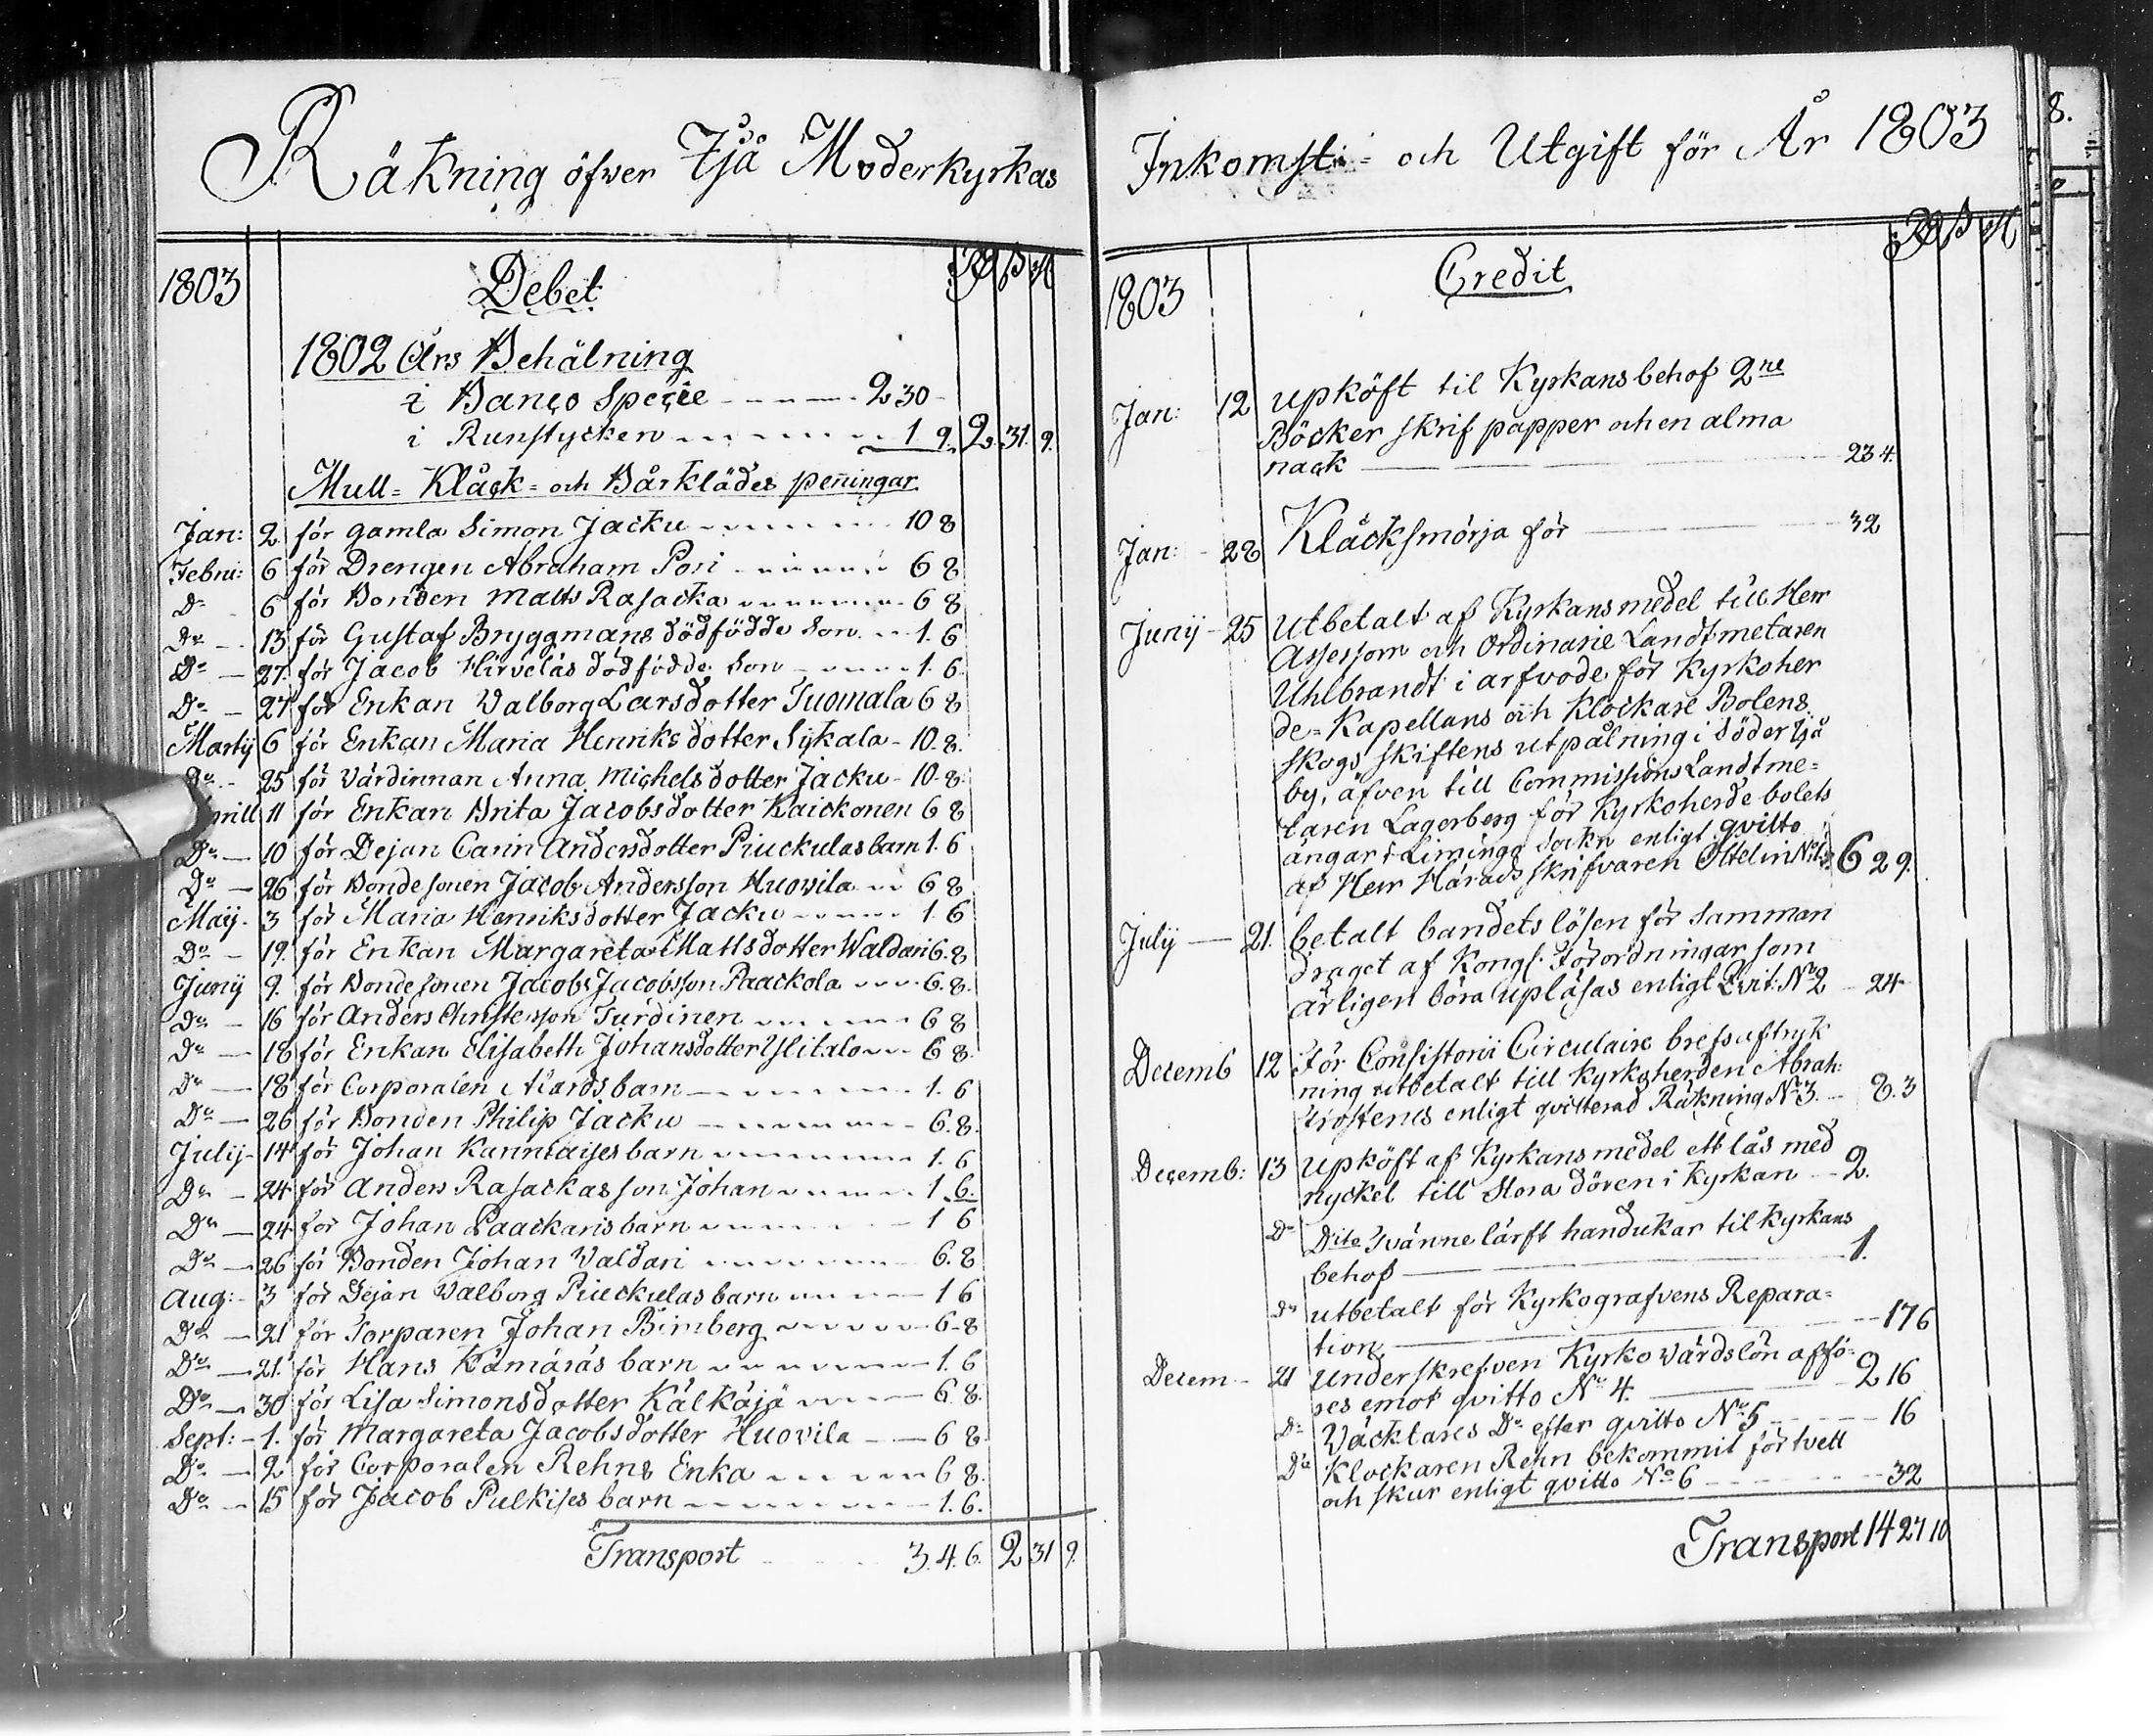 Räkning öfwer Ijå Moderkyrkas
1803
Debet
Rd ß rst
1802 Års Behålning
i Banco Specie - - - - 2 30 -
i Runstycken - - - - 1 9. 2. 31. 9.
Mull= Klåck= och Bårklädes peningar
Jan: 2. för gamla Simon Jacku - - - - 10 8
Febru: 6 för Drengen Abraham Pori - - - - 6 8
Do 6 för Bonden Matts Rasacka - - - - 6 8
Do - 13 för Gustaf Bryggmans dödfödde son - - 1. 6
Do - 27. för Jacob Hirveläs dödfödde son - - - - 1. 6.
Do - 27 för Enkan Valborg Larsdotter Tuomala 6 8
Martij 6 för Enkan Maria Henriksdotter Sykala - 10. 8.
Do - 25 för Värdinnan Anna Michelsdotter Jacku - 10. 8.
rill 11 för Enkan Brita Jacobsdotter Kaickonen 6 8
Do - 10 för Dejan Carin Andersdotter Piuckulas barn 1. 6
Do - 26 för Bondesonen Jacob Andersson Huovila - - 6 8
Maij - 3 för Maria Henriksdotter Jacku - - - - 1. 6
Do - 19. för Enkan Margareta Mattsdotter Waldari 6. 8
Junij 9. för Bondesonen Jacob Jacobsson Paackola - - - 6. 8.
Do - 16 för Anders Christersson Turdinen - - - - 6 8
Do - 18 för Enkan Elisabeth Johansdotter Ylitalo - - 6 8.
Do - 18 för Corporalen Alards barn - - - - 1. 6
Do - 26 för Bonden Philip Jacku - - - - 6. 8.
Julij - 14 för Johan Kanntaises barn - - - - 1. 6
Do - 24 för Anders Rasackas son Johan - - - - 1 6.
Do - 24 för Johan Paackaris barn - - - - 1 6
Do - 26 för Bonden Johan Waldari - - - - 6. 8
Aug: - 3 för Dejan Valborg Piuckulas barn - - - - 1 6
Do - 21 för Torparen Johan Bimberg - - - - 6 - 8
Do - 21. för Hans Kämäräs barn - - - - 1. 6
Do - 30 för Lisa Simonsdotter Kälkäjä - - - - 6. 8.
Sept: - 1. för Margareta Jacobsdotter Huovila - - 6 8.
Do - 2 för Corporalen Rehns Enka - - - - 6 8.
Do - 15 för Jacob Pulkises barn - - - - 1. 6.
Transport - - - - 3. 4. 6. 2 31 9.
Inkomst= och Utgift för År 1803
1803
Credit
Rd ß rst
Jan: 12 upköft til Kyrkans behof 2ne
Böcker skrif papper och en alma
nack - - - - 23 4.
Jan: - 28 Klåcksmörja för - - - - 32
Junij - 25 Utbetalt af Kyrkans medel till Herr
Assessorn och Ordinarie Landtmetaren
Uhlbrandt i arfvode för Kyrkoher
de= Kapellans och Klockare Bolens
skogs skiftens utpålning i Söder Ijå
by, äfven till Commissions Landtme=
taren Lagerberg för Kyrkoherde bolets
ängar i Limingo Sockn enligt qvitto
af Herr Härads skrifvaren Östelin No 1. 6 2 9.
Julij - 21. betalt bandets lösen för samman
draget af Kongl. Förordningar som
årligen böra upläsas enligt Qvit: No 2 - 24 -
Decemb 12 För Consistorii Circulaire brefs aftryk
ning utbetalt till Kyrkoherden Abrah:
Frosterus enligt qvitterad Räkning No 3. - 8. 3
Decemb: 13 Upköft af Kyrkans medel ett lås med
nyckel till Stora dören i Kyrkan - - 2.
Do Dito Tvänne lärft handukar til Kyrkans
behof - - - - 1.
Do utbetalt för Kyrkografvens Repara=
tion - - - - 17 6
Decem - 21 Underskrefven Kyrkovärdslön affö=
res emot qvitto No 4. - - - - 2 16
Do Väcktares Do efter qvitto No 5 - - - - 16
Do Klockaren Rehn bekommit för tvett
och skur enligt qvitto No 6 - - - - 32
Transport 14 27 10
8.